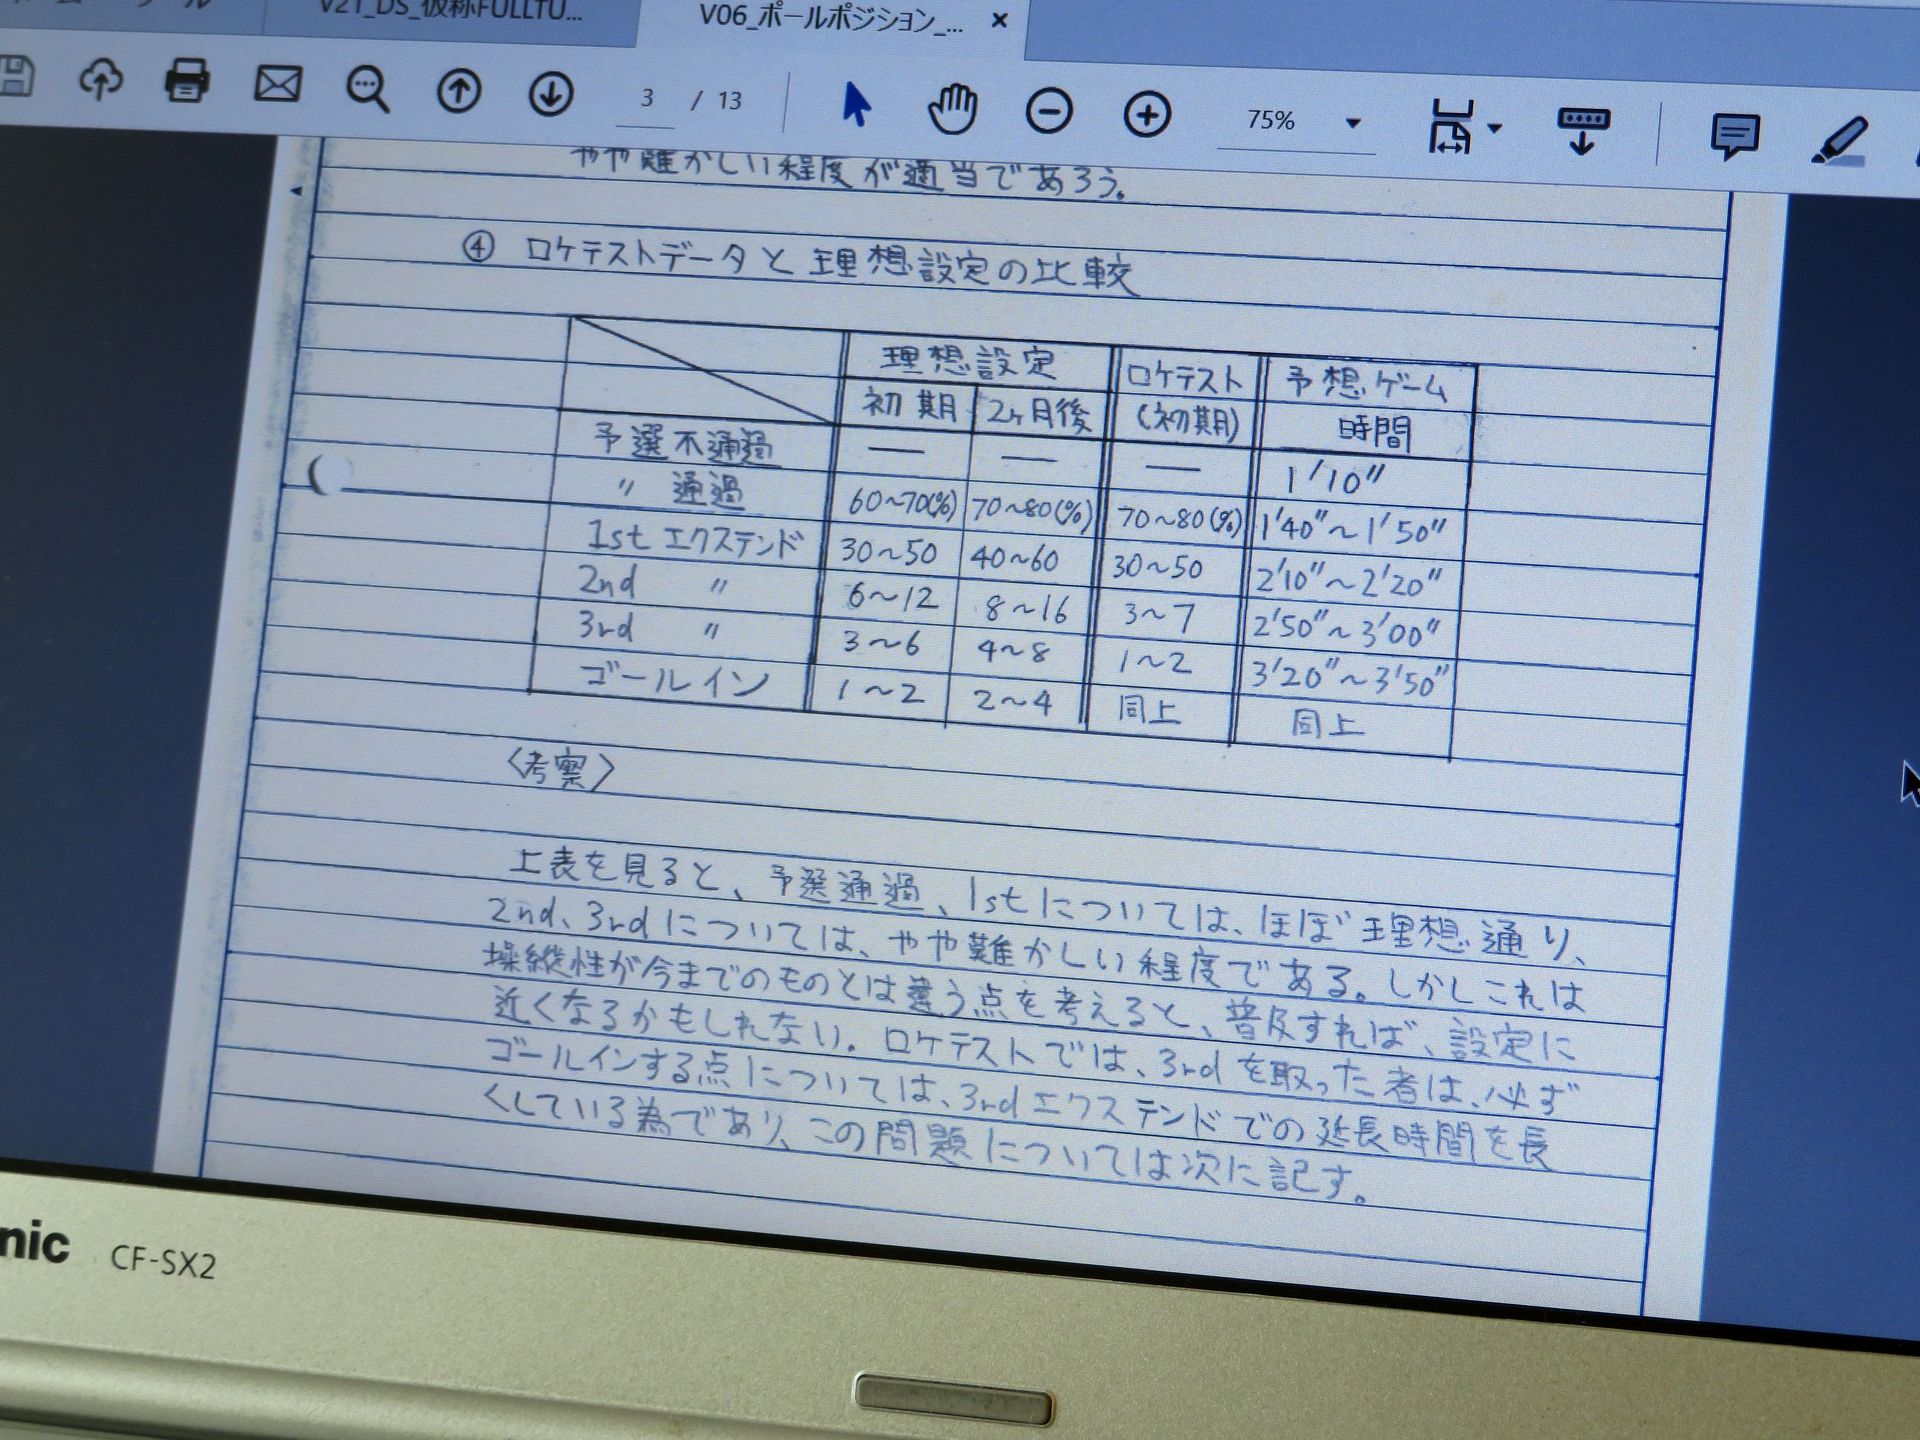 V21_DS_仮称FULLTU...
V06_ポールポジション_...
3 / 13
75%
やや難かしい程度が適当であろう。
④ ロケテストデータと理想設定の比較
理想設定 ロケテスト 予想ゲーム
初期 2ヶ月後 (初期) 時間
予選不通過 — — — 1'10"
〃 通過 60~70(%) 70~80(%) 70~80(%) 1'40"~1'50"
1st エクステンド 30~50 40~60 30~50 2'10"~2'20"
2nd 〃 6~12 8~16 3~7 2'50"~3'00"
3rd 〃 3~6 4~8 1~2 3'20"~3'50"
ゴールイン 1~2 2~4 同上 同上
〈考察〉
上表を見ると、予選通過、1stについては、ほぼ理想通り、
2nd、3rdについては、やや難かしい程度である。しかしこれは
操縦性が今までのものとは違う点を考えると、普及すれば、設定に
近くなるかもしれない。ロケテストでは、3rdを取った者は、必ず
ゴールインする点については、3rdエクステンドでの延長時間を長
くしている為であり、この問題については次に記す。
nic CF-SX2